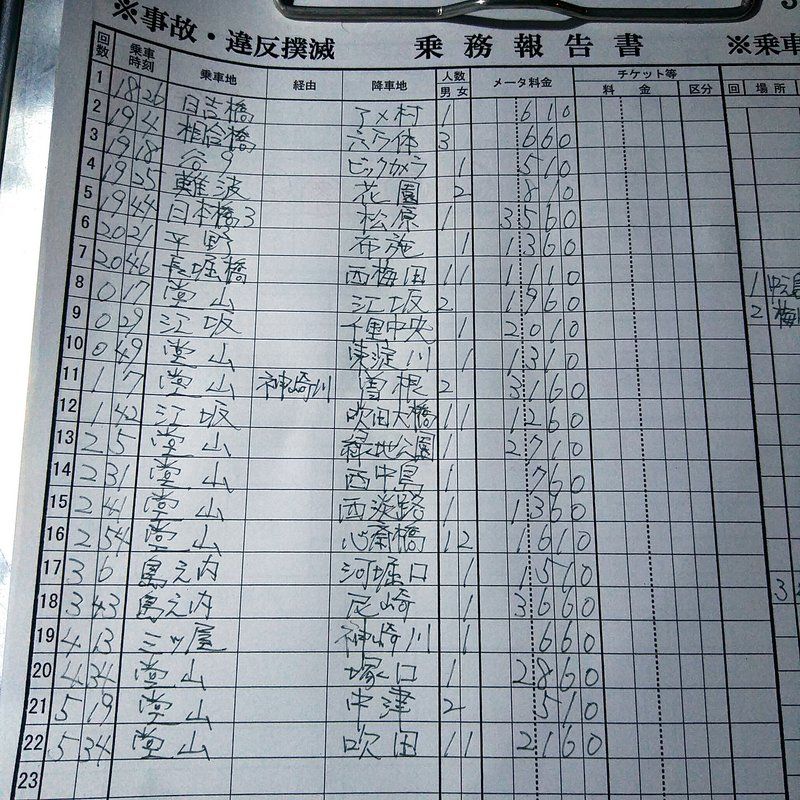 ※事故・違反撲滅 乗務報告書 ※乗車
回数 乗車時刻 乗車地 経由 降車地 人数 男 女 メータ料金 チケット等 料金 区分 回 場所
1 18 26 日吉橋 アメ村 1 610
2 19 4 相合橋 3 660
3 19 18 谷9 ビックカメラ 1 510
4 19 25 難波 花園 2 810
5 19 44 日本橋3 松原 1 3560
6 20 21 平野 布施 1 1360
7 20 46 長堀橋 西梅田 1 1 1110
8 0 17 堂山 江坂 2 1960 1
9 0 29 江坂 千里中央 1 2010 2 梅
10 0 49 堂山 東淀川 1 1310
11 1 7 堂山 神崎川 曽根 2 3160
12 1 42 江坂 吹田大橋 1 1 1260
13 2 5 堂山 緑地公園 1 2710
14 2 31 堂山 西中島 1 760
15 2 41 堂山 西淡路 1 1360
16 2 54 堂山 心斎橋 1 2 1610
17 3 6 島之内 河堀口 1 1510
18 3 43 島之内 尼崎 1 3660
19 4 13 三ツ屋 神崎川 1 660
20 4 34 堂山 塚口 1 2860
21 5 19 堂山 中津 2 510
22 5 34 堂山 吹田 1 1 2160
23